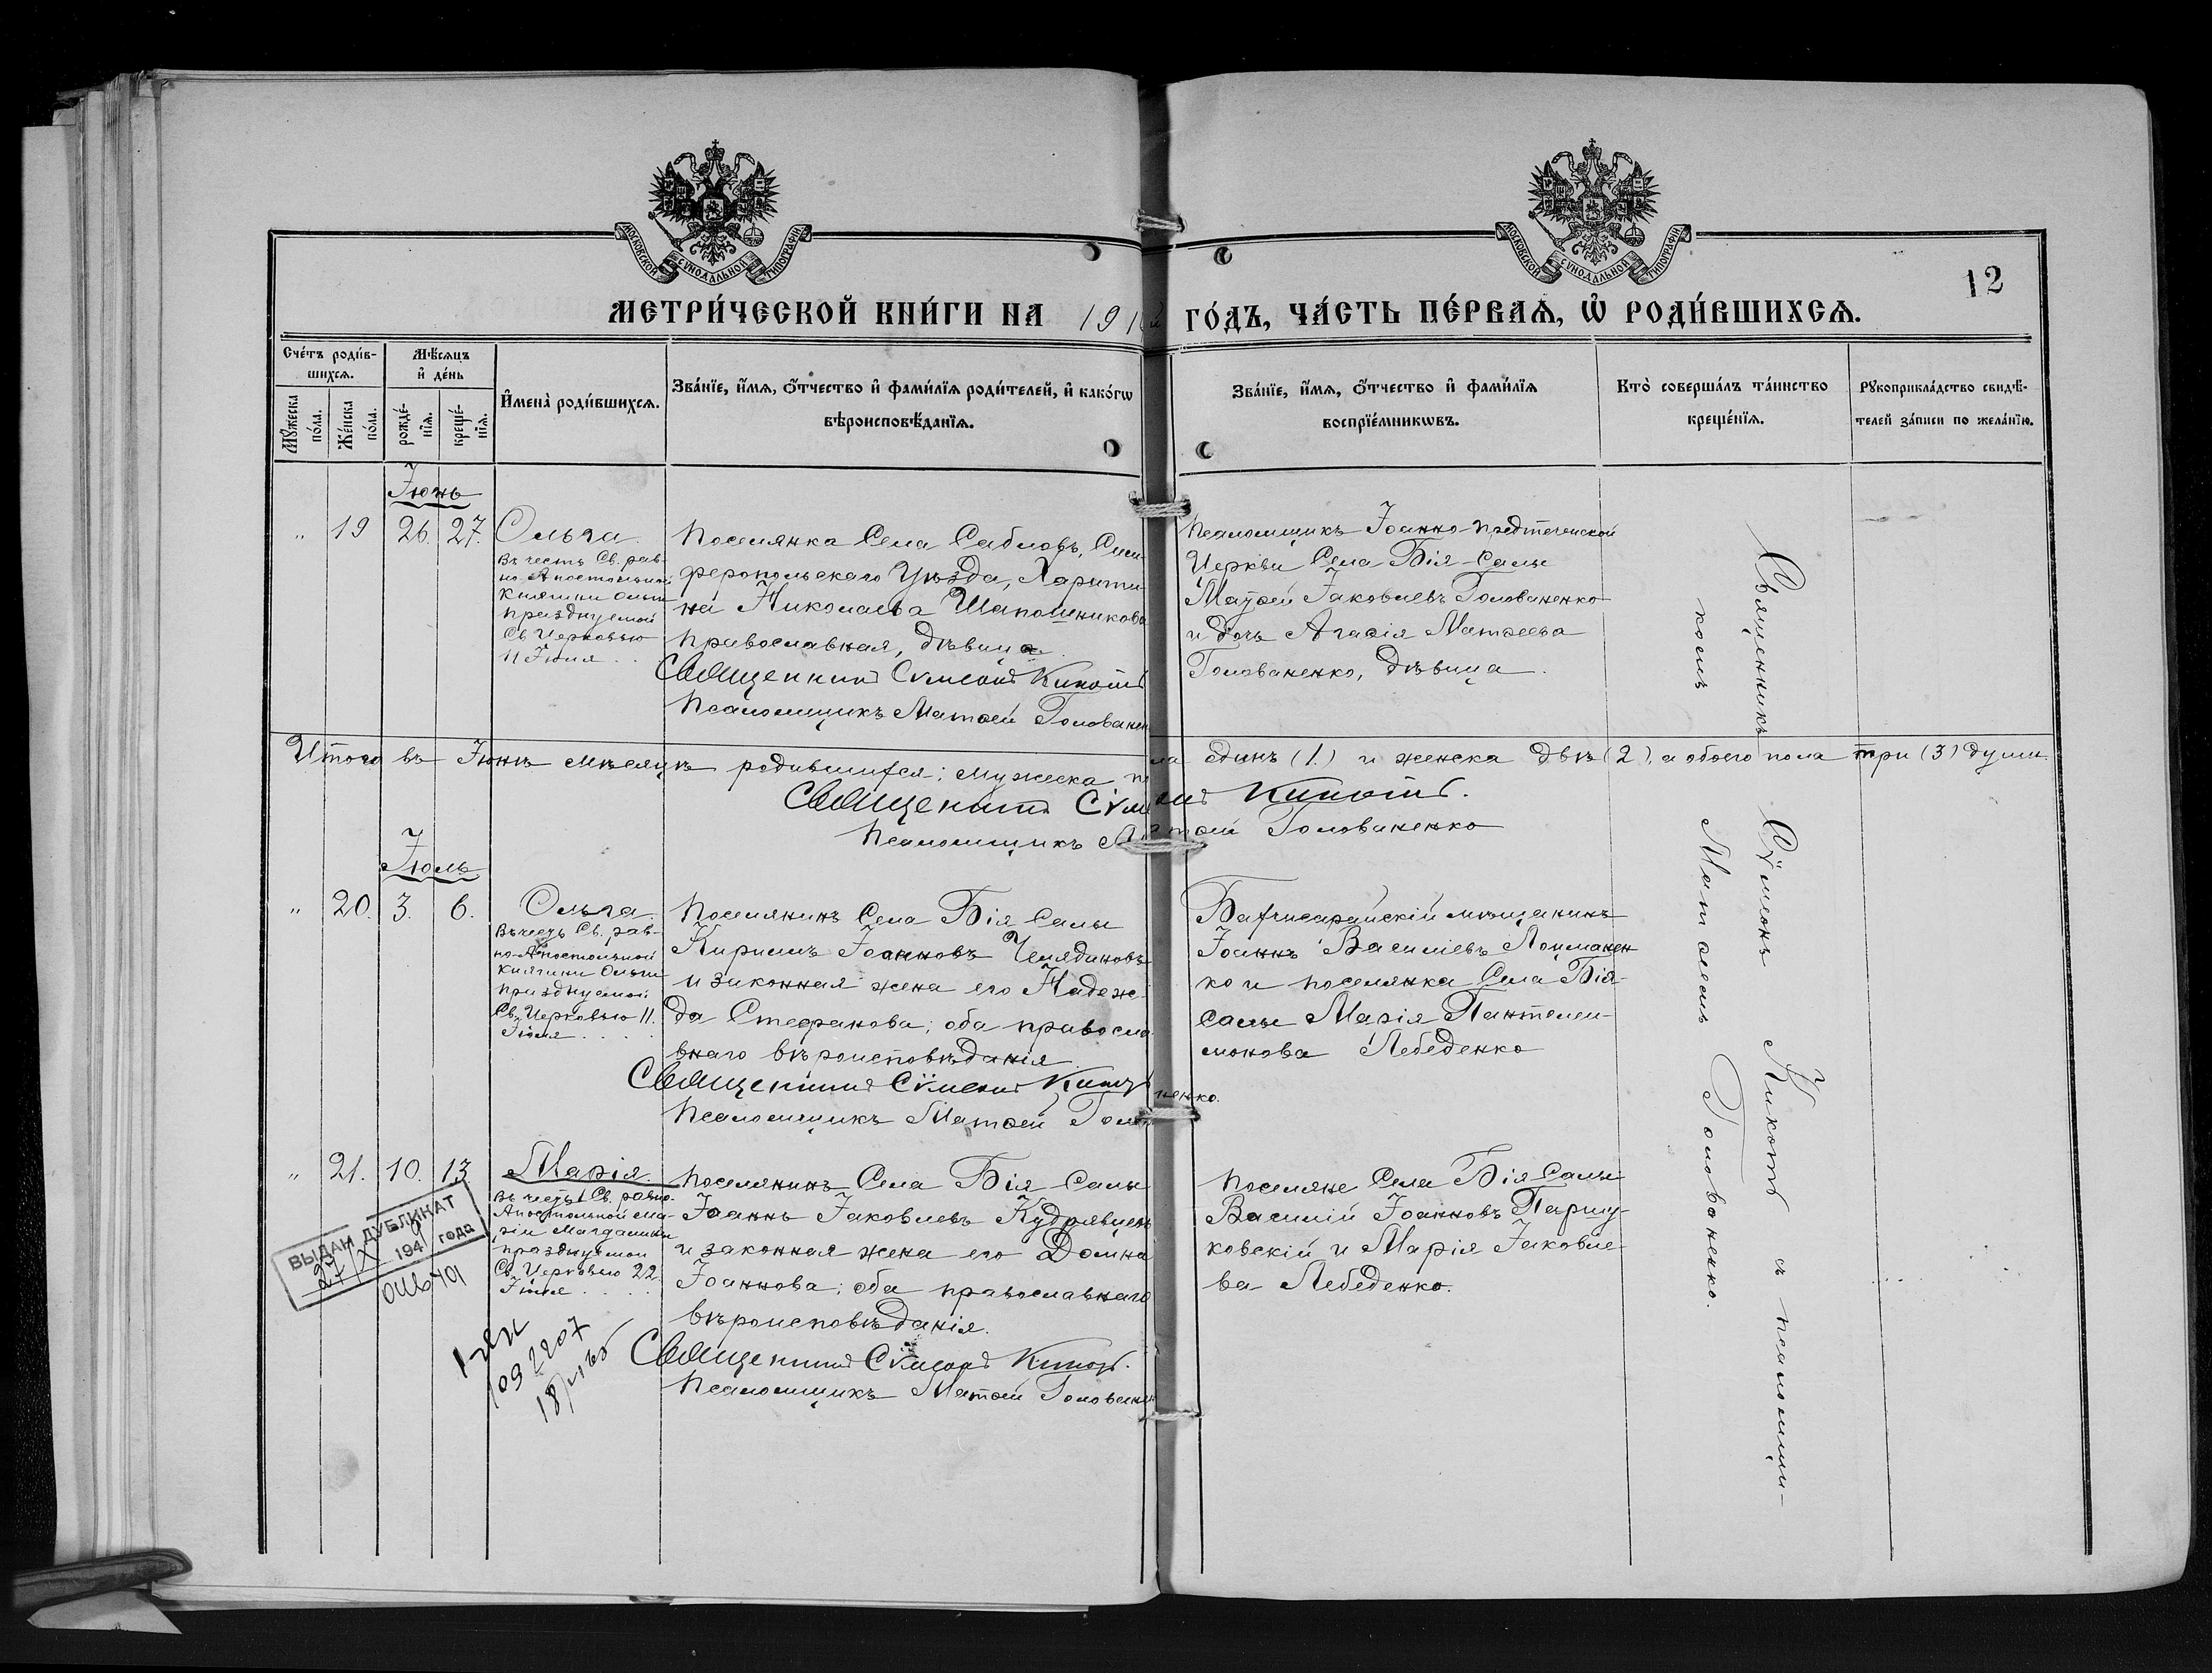 МОСКОВСКОЙ СѴНОДАЛЬНОЙ ТИПОГРАФІИ
МОСКОВСКОЙ СѴНОДАЛЬНОЙ ТИПОГРАФІИ
12
МЕТРИ́ЧЕСКОЙ КНИ́ГИ НА 191 ГО́ДЪ, ЧА́СТЬ ПЕ́РВАѦ, Ѡ РОДИ́ВШИХСѦ.
Сче́тъ роди́в-
шихсѧ.
Мꙋжеска
по́ла.
Же́нска
по́ла.
Мѣ́сѧцъ
и де́нь
рожде́-
нїѧ.
креще́-
нїѧ.
Имена̀ роди́вшихсѧ.
Зва́нїе, и́мѧ, о́тчество и фами́лїѧ роди́телей, и како́гѡ
вѣроисповѣ́данїѧ.
Зва́нїе, и́мѧ, о́тчество и фами́лїѧ
воспрїе́мникѡвъ.
Кто̀ соверша́лъ та́инство
креще́нїѧ.
Рꙋкоприкла́дство свидѣ́-
телей за́писи по жела́нїю.
Іюнь
" 19 26. 27. Ольга.
Въ честь Св. рав-
но-Апостольной
Княгини Ольги
празднуемой
Св. Церковью
11 Іюля . .
Поселянка Села Сабловъ, Сим-
феропольскаго Уѣзда, Харити-
на Николаева Шапошникова
православная, дѣвица.
Священникъ Сѵмеонъ Кикотъ
Псаломщикъ Матѳей Голованен
Псаломщикъ Іоанно-Предтеченской
Церкви Села Бія-Салы
Матѳей Іаковлевъ Голованенко
и дочь Агафія Матѳеева
Голованенко, дѣвица.
Итого въ Іюнѣ мѣсяцѣ родившихся: мужеска пола одинъ (1.) и женска двѣ (2), а обоего пола три (3) души
Священникъ Сѵмеонъ Кикотъ.
Псаломщикъ Матѳей Голованенко
Іюль
" 20. 3. 6. Ольга.
Въ честь Св. рав-
но-Апостольной
Княгини Ольги
празднуемой
Св. Церковью 11.
Іюля . . . .
Поселянинъ Села Бія Салы
Кириллъ Іоанновъ Челядиновъ
и законная жена его Надеж-
да Стефанова; оба правосла-
внаго вѣроисповѣданія
Священникъ Сѵмеонъ Кикотъ
Псаломщикъ Матѳей Голованенко.
Бахчисарайскій мѣщанинъ
Іоаннъ Василіевъ Лоцманен
ко и поселянка Села Бія-
салы Марія Пантелеи-
монова Лебеденко
" 21. 10. 13 Марія.
Въ честь Св. равно-
Апостольной Ма-
ріи Магдалины
празднуемой
Св. Церковью 22.
Іюля . . . .
Поселянинъ Села Бія Салы
Іоаннъ Іаковлевъ Кудрявцевъ
и законная жена его Домна
Іоаннова; оба православнаго
вѣроисповѣданія.
Священникъ Сѵмеонъ Кикотъ.
Псаломщикъ Матѳей Голованен
Поселяне Села Бія Салы
Василій Іоанновъ Паршу-
ковскій и Марія Іаковле-
ва Лебеденко.
Священникъ Сѵмеонъ Кикотъ съ псаломщи-
комъ Матѳеемъ Голованенко.
ВЫДАН ДУБЛИКАТ
27 X 194 года